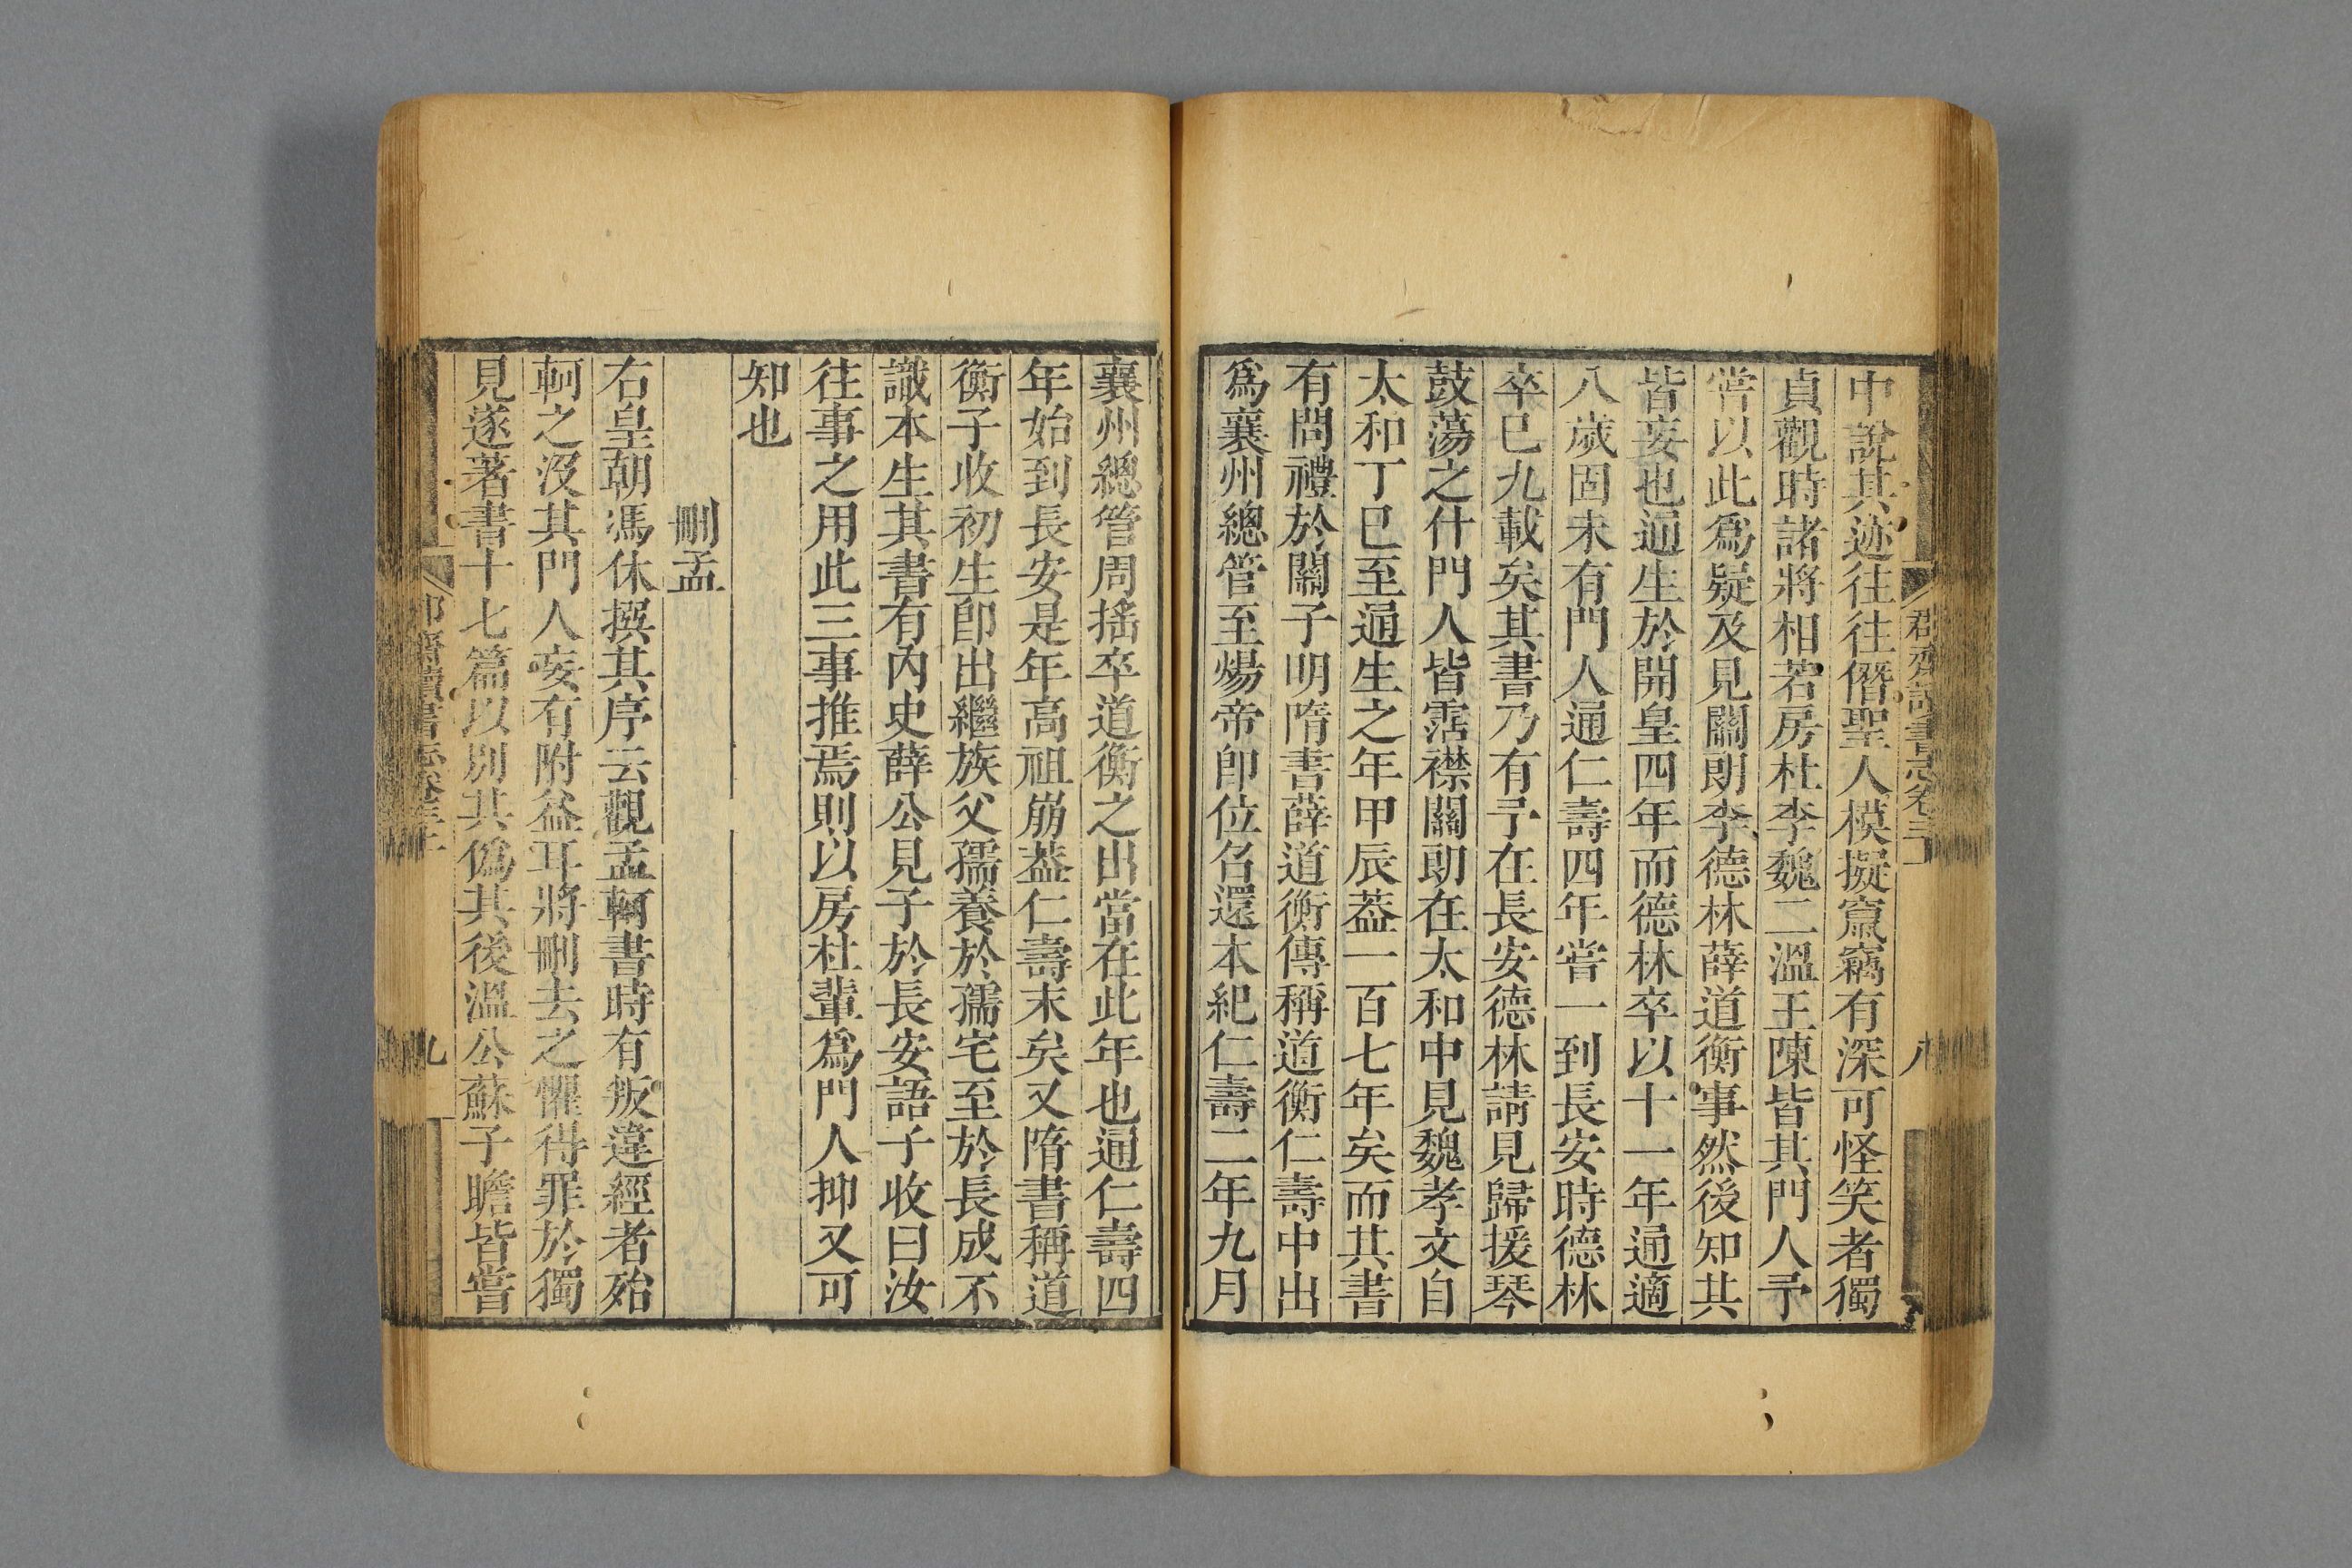 中說其迹往往僭聖人模擬竄竊有深可怪笑者獨
貞觀時諸將相若房杜李魏二溫王陳皆其門人予
嘗以此爲疑及見關朗李德林薛道衡事然後知其
皆妄也通生於開皇四年而德林卒以十一年通適
八歲固未有門人通仁壽四年嘗一到長安時德林
卒已九載矣其書乃有子在長安德林請見歸援琴
鼓蕩之什門人皆霑襟關朗在太和中見魏孝文自
太和丁巳至通生之年甲辰葢一百七年矣而其書
有問禮於關子明隋書薛道衡傳稱道衡仁壽中出
爲襄州總管至煬帝即位召還本紀仁壽二年九月
襄州總管周搖卒道衡之出當在此年也通仁壽四
年始到長安是年高祖崩葢仁壽末矣又隋書稱道
衡子收初生即出繼族父孺養於孺宅至於長成不
識本生其書有內史薛公見子於長安語子收曰汝
往事之用此三事推焉則以房杜輩爲門人抑又可
知也
刪孟
右皇朝馮休撰其序云觀孟軻書時有叛違經者殆
軻之沒其門人妄有附益耳將刪去之懼得罪於獨
見遂著書十七篇以別其僞其後溫公蘇子瞻皆嘗
九